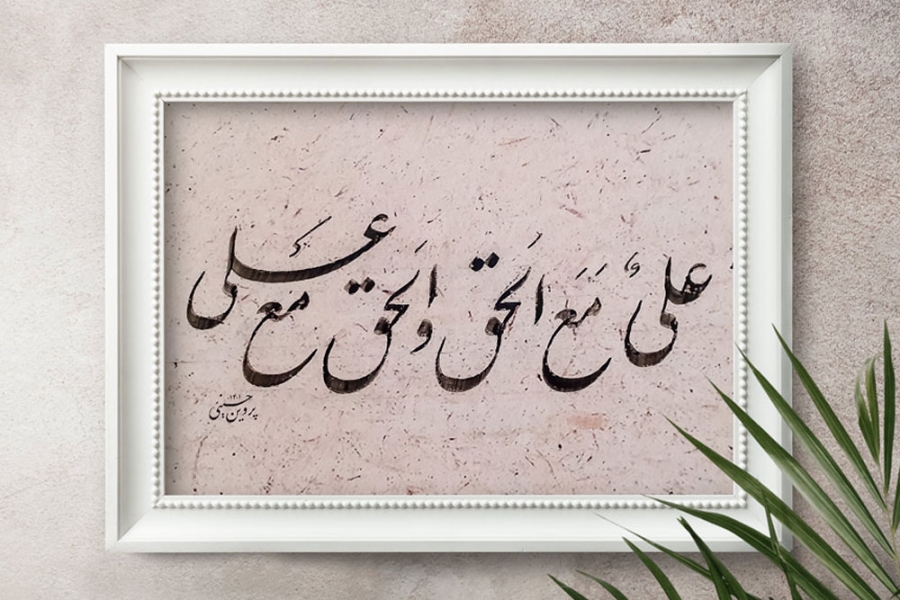 علیُ مَعَ اَلحق و اَلحق مع عَـلی
پروین حسینی
۱۴۰۱